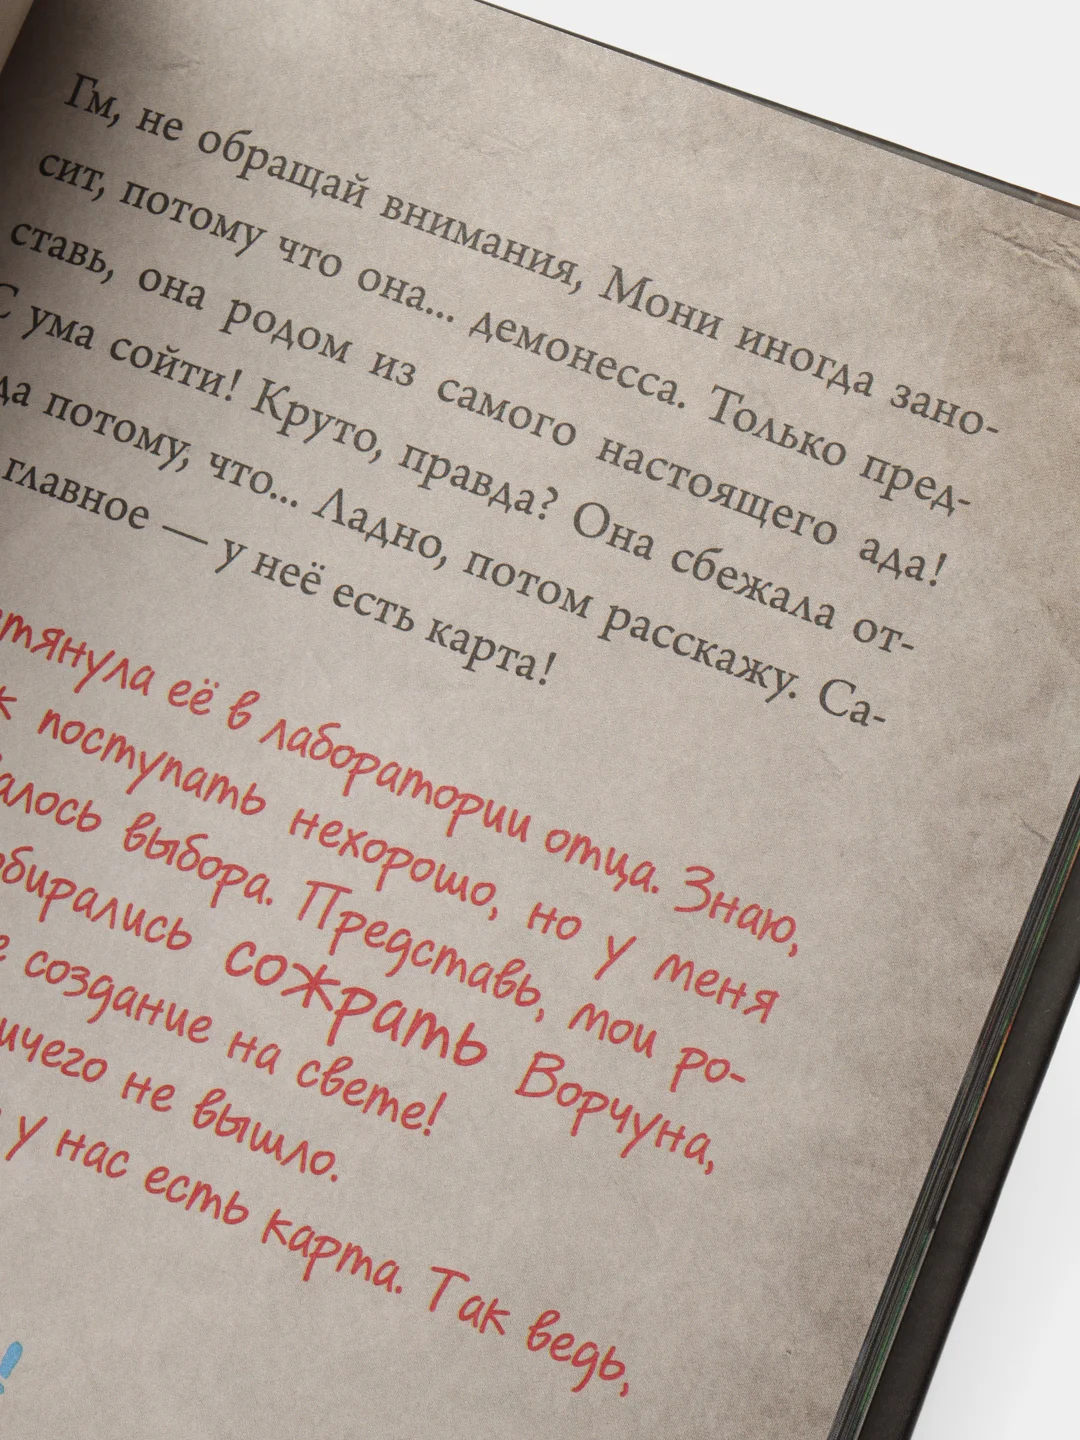 Гм, не обращай внимания, Мони иногда зано-
сит, потому что она... демонесса. Только пред-
ставь, она родом из самого настоящего ада!
С ума сойти! Круто, правда? Она сбежала от-
да потому, что... Ладно, потом расскажу. Са-
главное — у неё есть карта!
тянула её в лаборатории отца. Знаю,
к поступать нехорошо, но у меня
алось выбора. Представь, мои ро-
обирались сожрать Ворчуна,
е создание на свете!
ичего не вышло.
у нас есть карта. Так ведь,
!